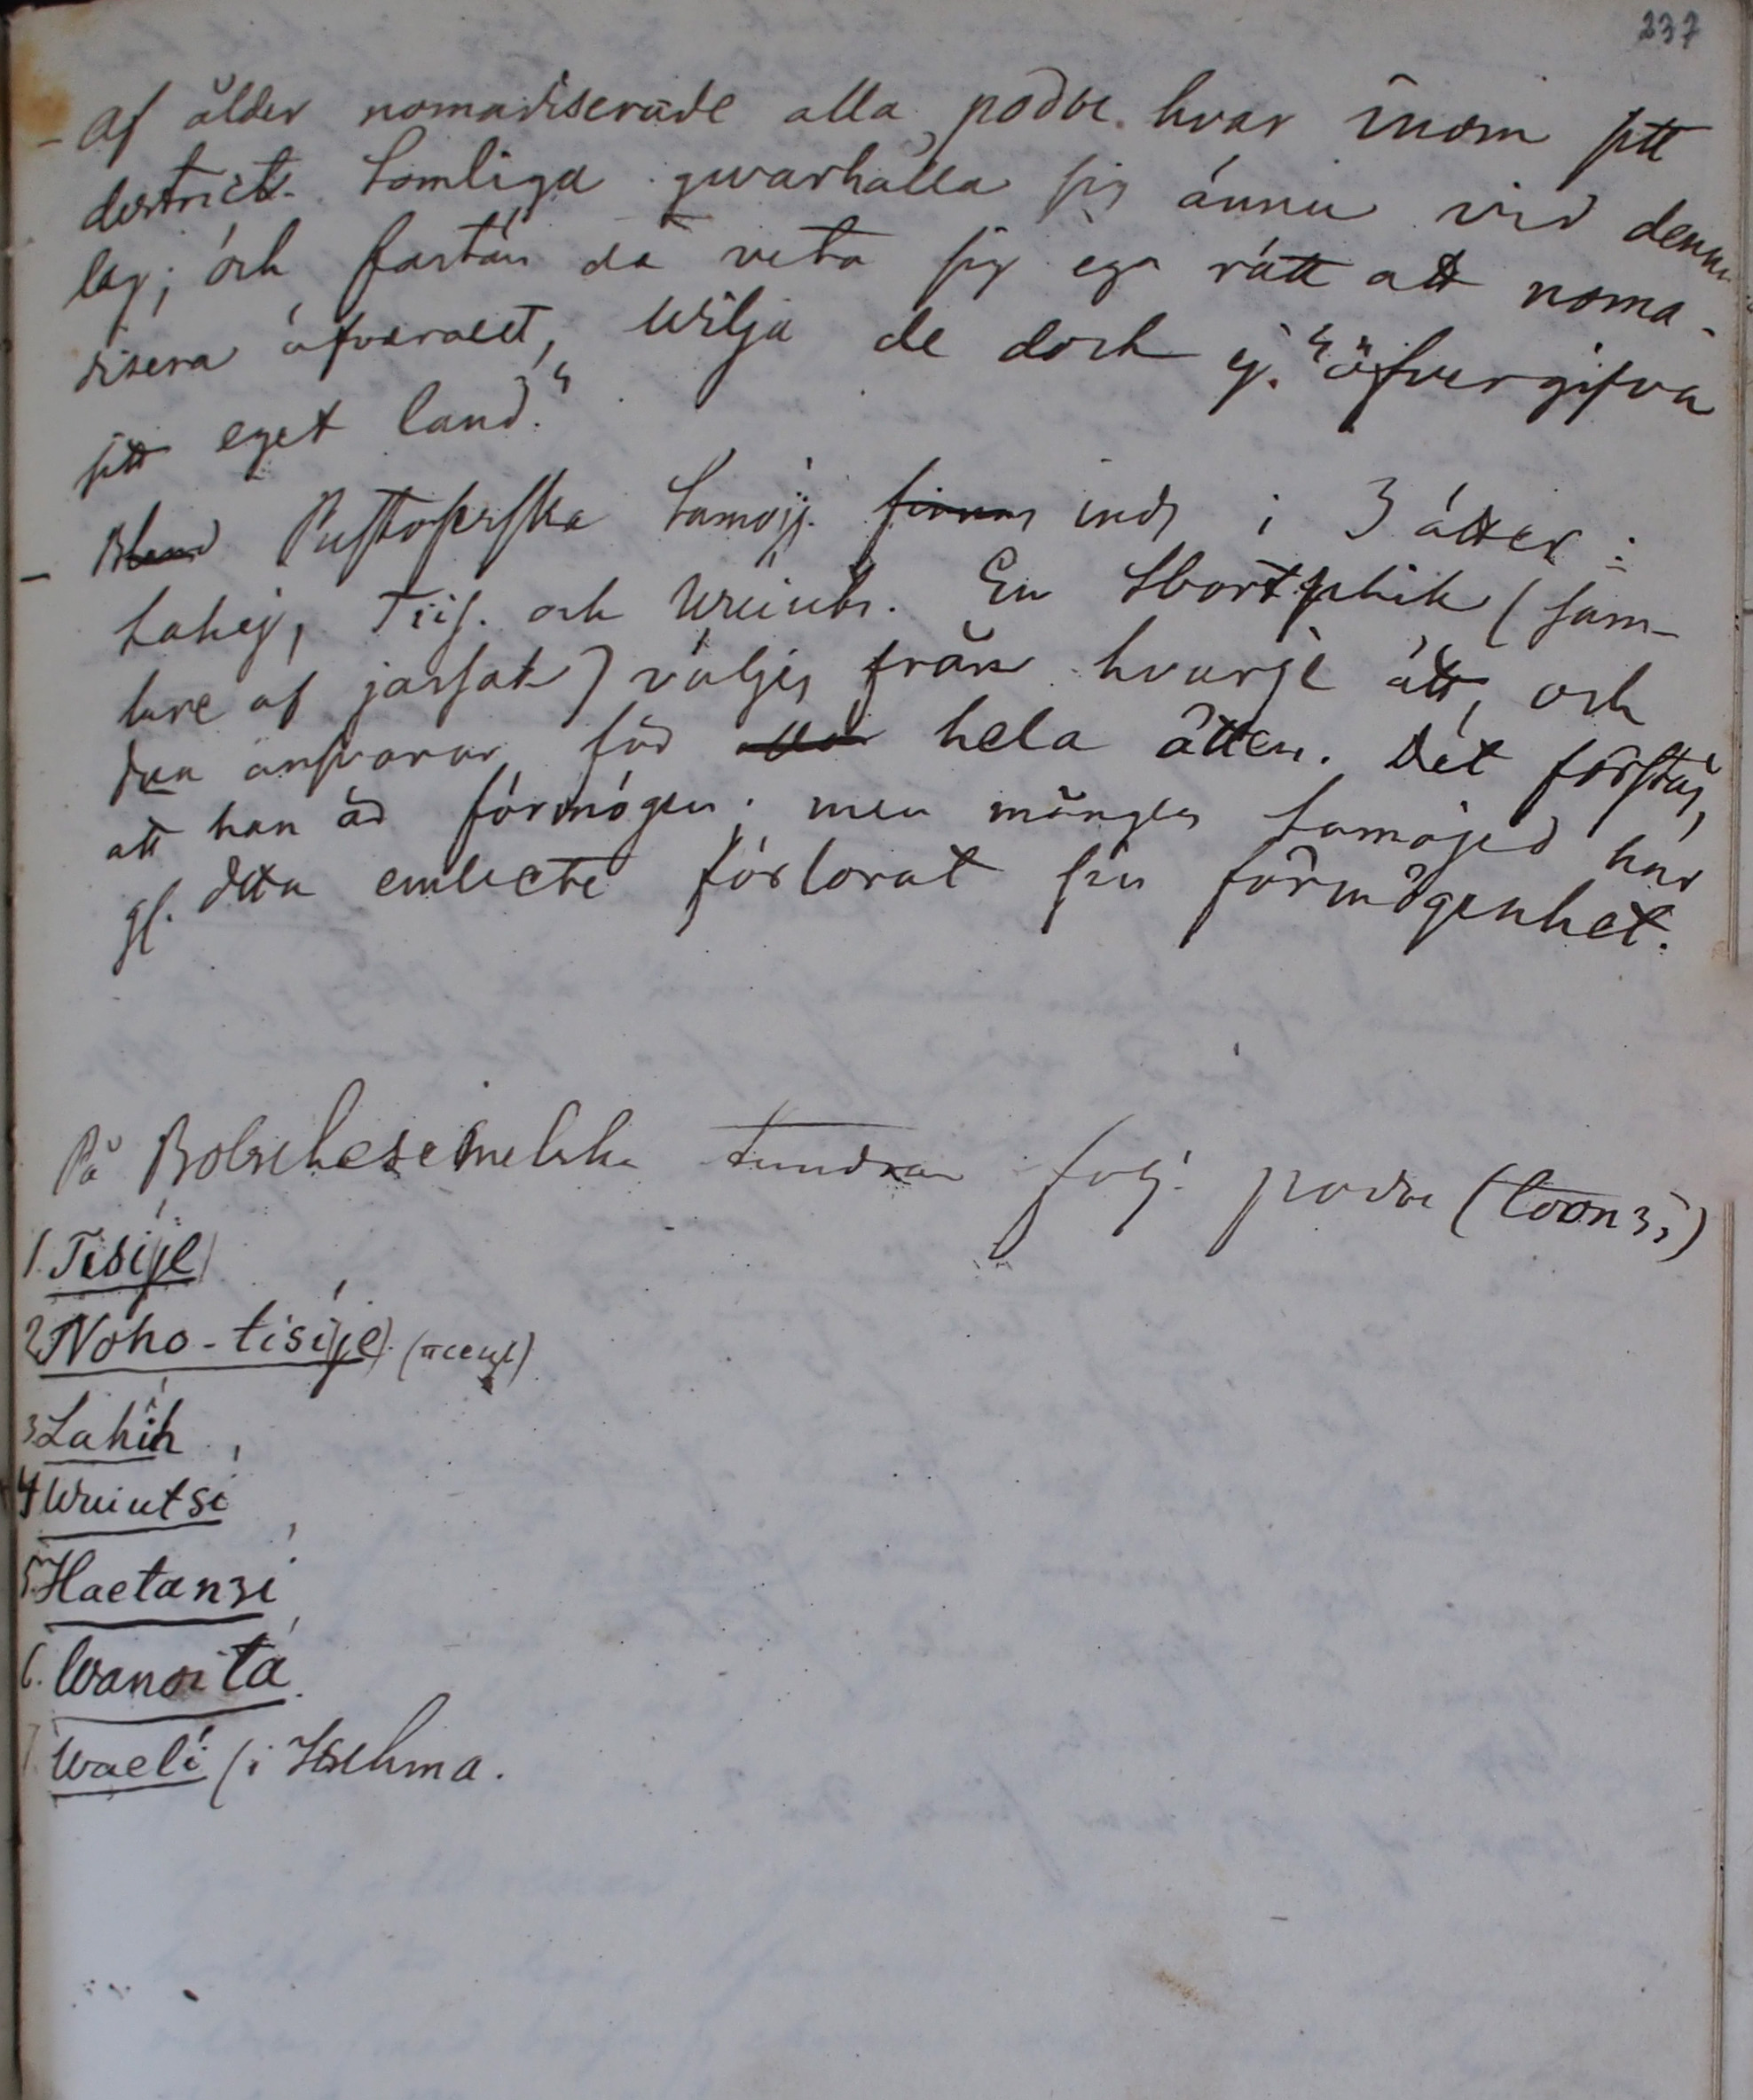 237
- Af ålder nomadiserade alla podor hvar inom sitt
district. Somliga qwarhålla sig ännu vid denna
lag; och fastän de veta sig ega rätt att noma-
disera öfverallt, wilja de dock ej "öfvergifva
sitt eget land."
- Bland Pustoserska Samoj. finnas inds i 3 ätter:
Lahej, Tiis. och Wuiuts. En Sbortschik (sam-
lare af jassak) väljes från hvarje ätt, och
den ansvarar för alla hela ätten. Det förstås,
att han är förmögen; men mången Samojed har
gš. detta embete förlorat sin förmögenhet.
På Bolschesemelska tundran följ. podor (toonzi)
1. Tisije
2 Noho-tisije).
3 Lahih
4 Wuiutsi
5. Haetanzi
6. Wanoita
7. Waeli (i Ischma.